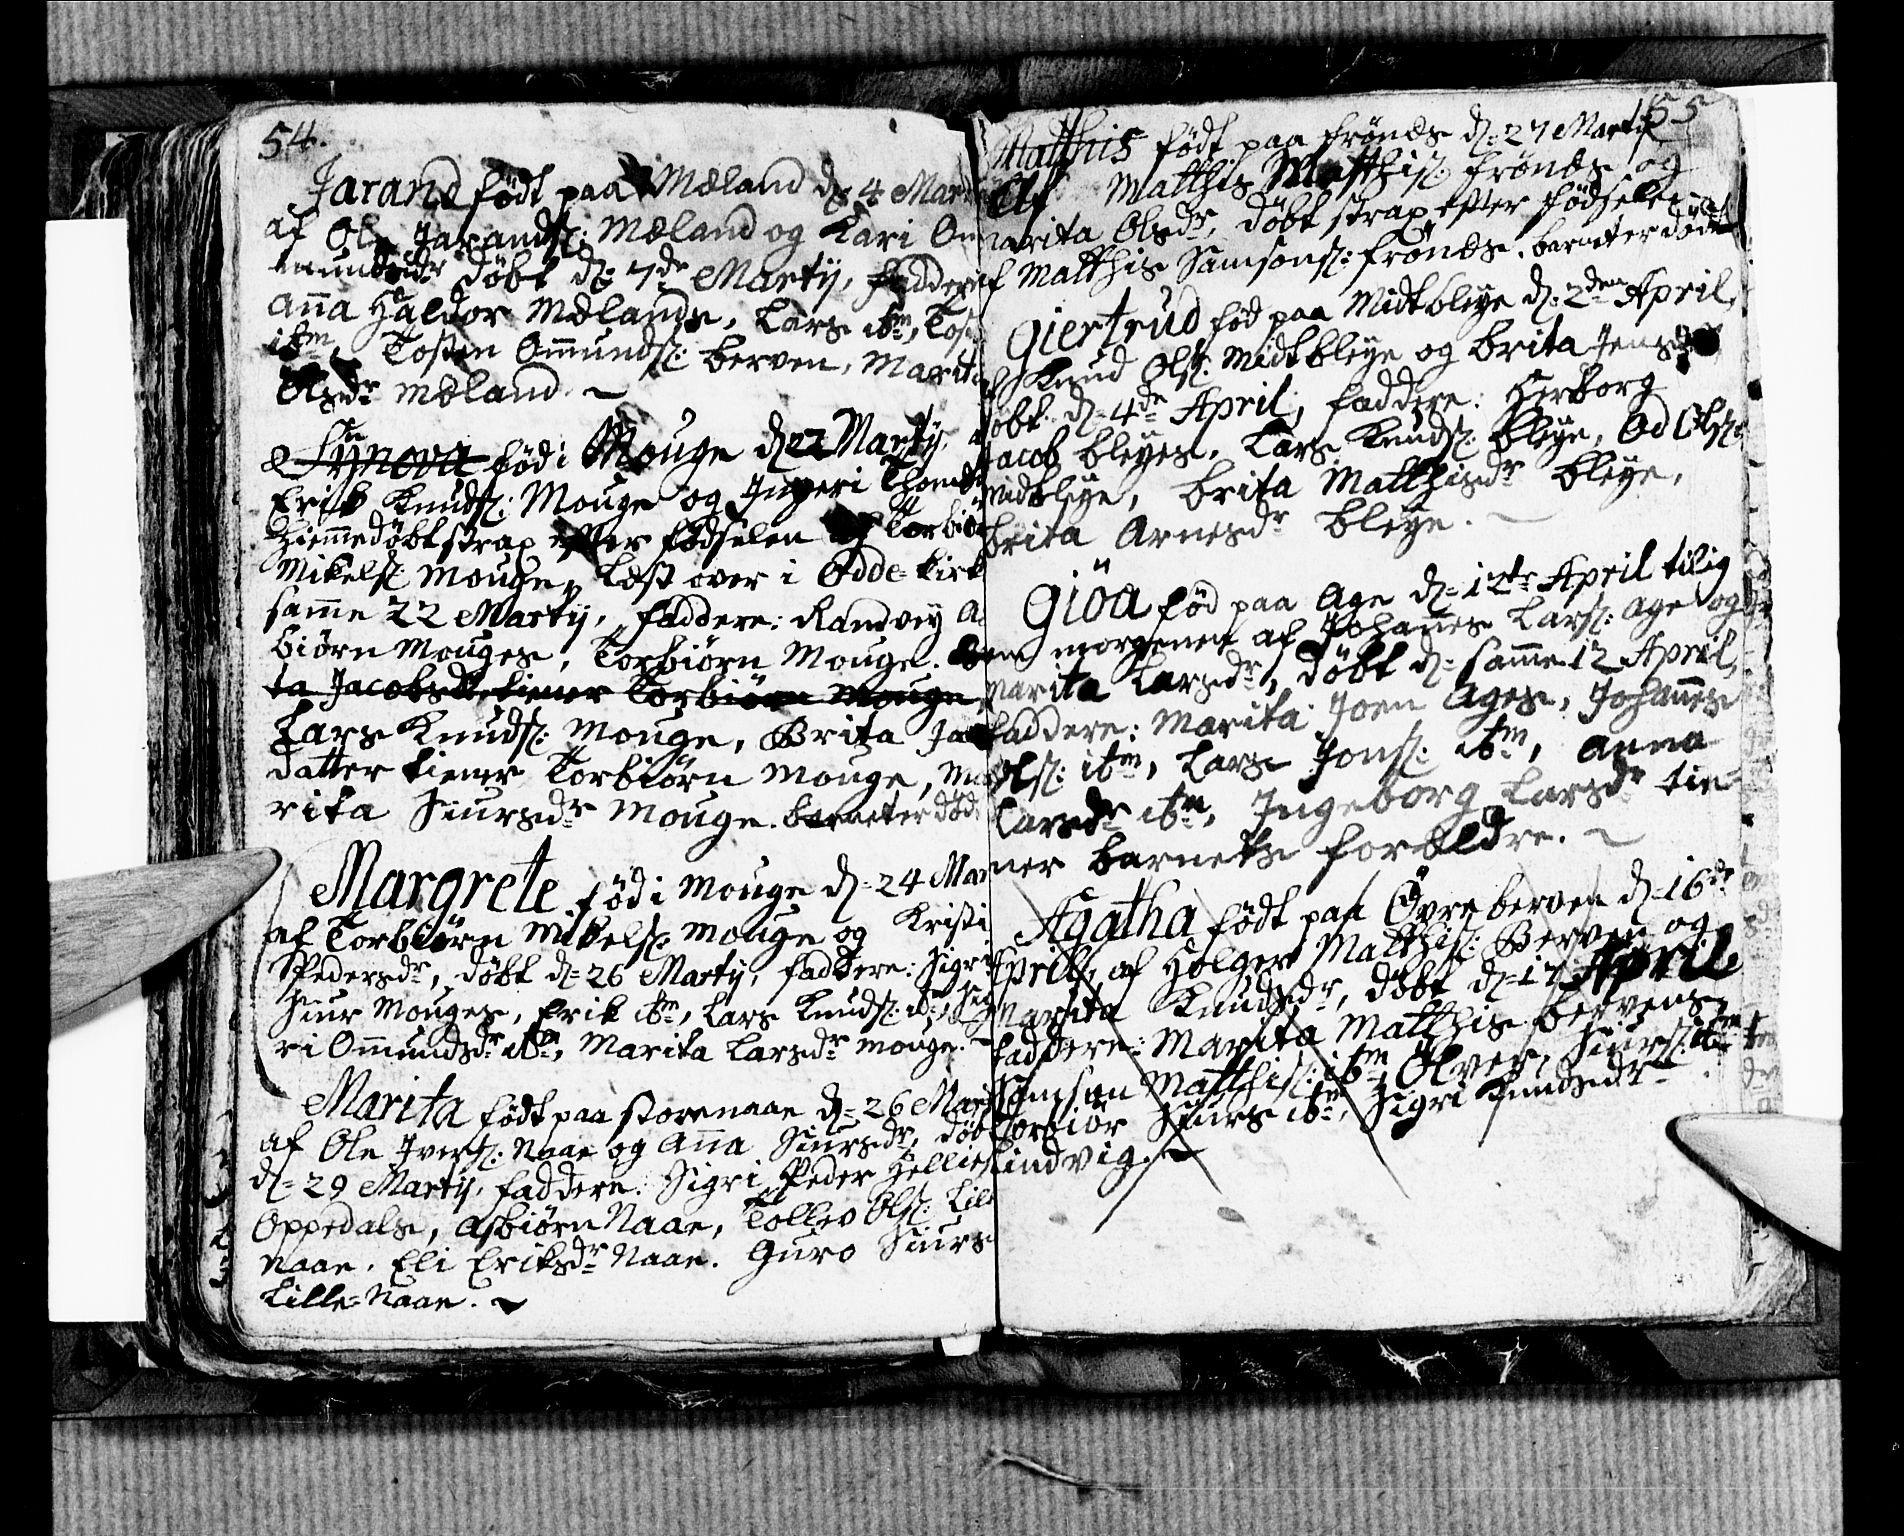 54.
Jarand født paa Mæland d: 4 Mar
af Ole Jarands: Mæland og Kari Om
mundsdr døbt d: 7de Martij, faddere
Anna Haldor Mælands, Lars ibm, Tost
ibm, Tosten Ommunds: Berven, Marita
Olsdr Mæland. ~
Synova fød i Mouge d 22 Martij,
Erik Knuds: Mouge og Ingeri Thomd
hiemmedøbt strax efter fødselen af Torbiø
Mikels: Mouge, læst over i Odde kirk
samme 22 Martij, faddere: Randvey
biørn Mouges, Torbiørn Mouge.
ta Jacobsdr tiener Torbiørn Mouge
Lars Knuds: Mouge, Brita Ja
datter tiener Torbiørn Mouge, Ma
rita Siursdr Mouge. barnet er død
Margrete fød i Mouge d= 24 Mar
af Torbiørn Mikels: Mouge og Kristi
Pedersdr, døbt d= 26 Martij, faddere: Sigri
Siur Mouges, Erik ibm, Lars Knuds: ibm, Sig
ri Ommundsdr ibm, Marita Larsdr Mouge. ~
Marita født paa storenaae d= 26 Mar
af Ole Ivers: Naae og Anna Siursdr, døb
d= 29 Martij, faddere: Sigri Peder Hellies
Oppedals, Asbiørn Naae, Tollev Ols: Lill
Naae, Eli Eriksdr Naae. Guro Siurs
Lille=Naae. ~
55
Matthis født paa frønæs d= 27 Martij
Af Matthis Matthis: frønæs og
marita Olsdr, døbt strax efter fødselen
af Matthis Samsons: frønæs. barnet er død
Giertrud fød paa Midtbleye d: 2den April,
af Knud Ols: Midtbleye og Brita Jensdr
døbt d= 4de April, faddere: Herborg
Jacob bleyes, Lars Knuds: bleye, Od Ols:
Midtbleye, brita Matthisdr bleye,
brita Arnesdr bleye. ~
Giöa fød paa Age d= 12te April tilig
om morgenen af Johannes Lars: Age og
Marita Larsdr, døbt d= samme 12 April,
faddere: Marita Joen Ages, Johannes
Ols: ibm, Lars Jons: ibm, Anna
Larsdr ibm, Ingeborg Larsdr tie=
ner barnets forældre. ~
Agatha født paa Øvre berven d= 16de
Aprils, af Holger Matthis: Berven og
Marita Knudsdr, døbt d= 17 April
faddere: Marita Matthis bervens,
Samson Matthis: ibm, Ølver Siurs: ibm
Torbiør Siurs ibm, Sigri Knudsdr
Lindvig. ~